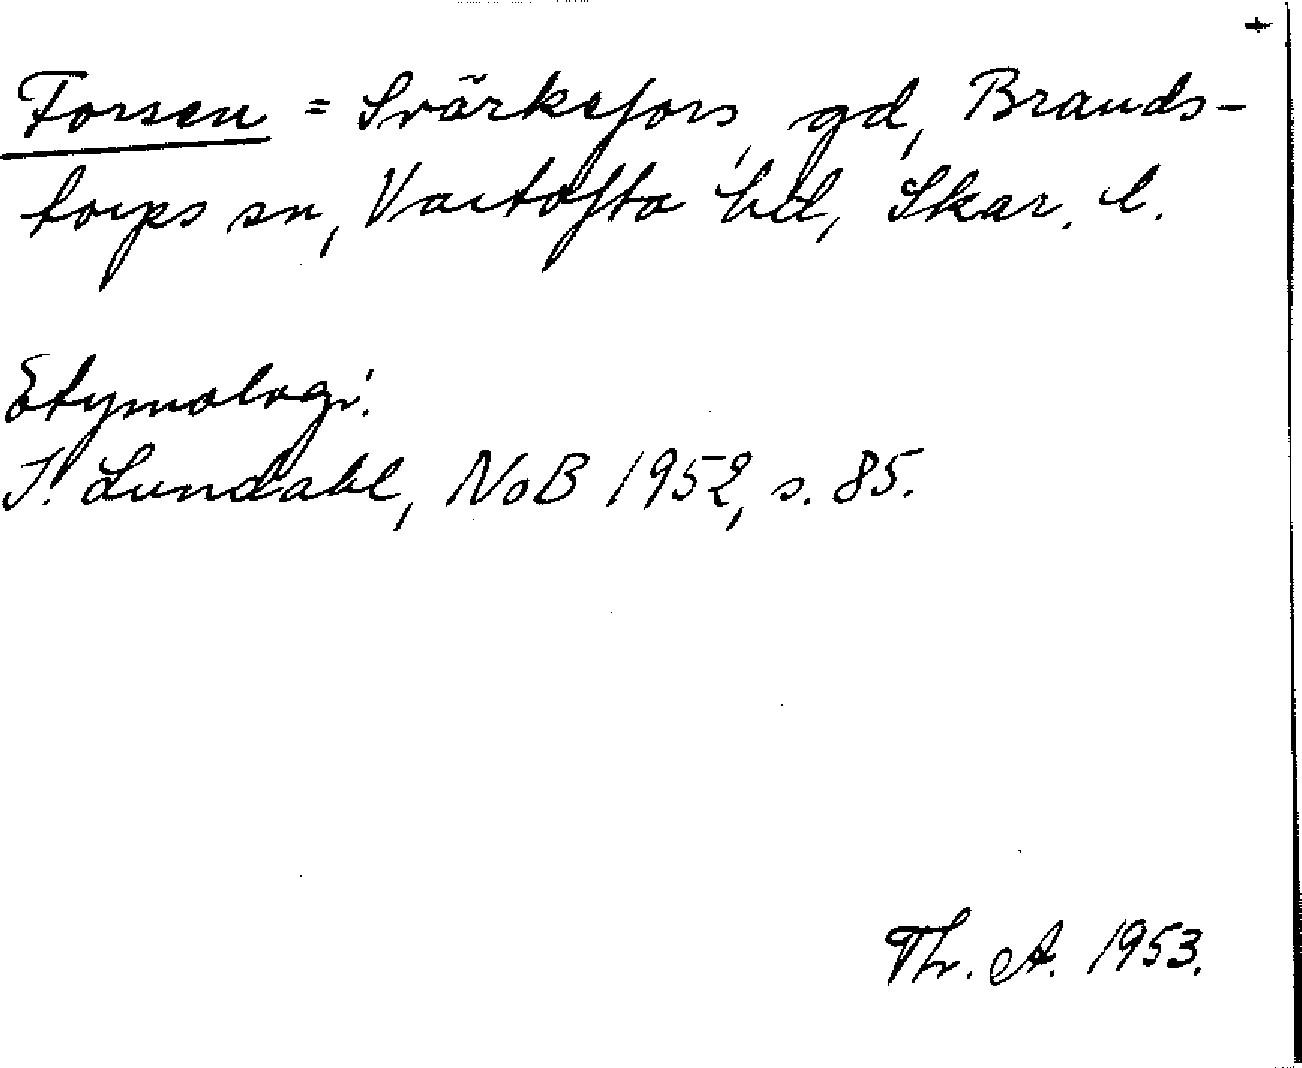 Forsen = Svärkefors, gd, Brands-
torps sn, Vartofta hd, Skar. l.
Etymologi:
I. Lundahl, NoB 1952, s. 85.
Th. A. 1953.